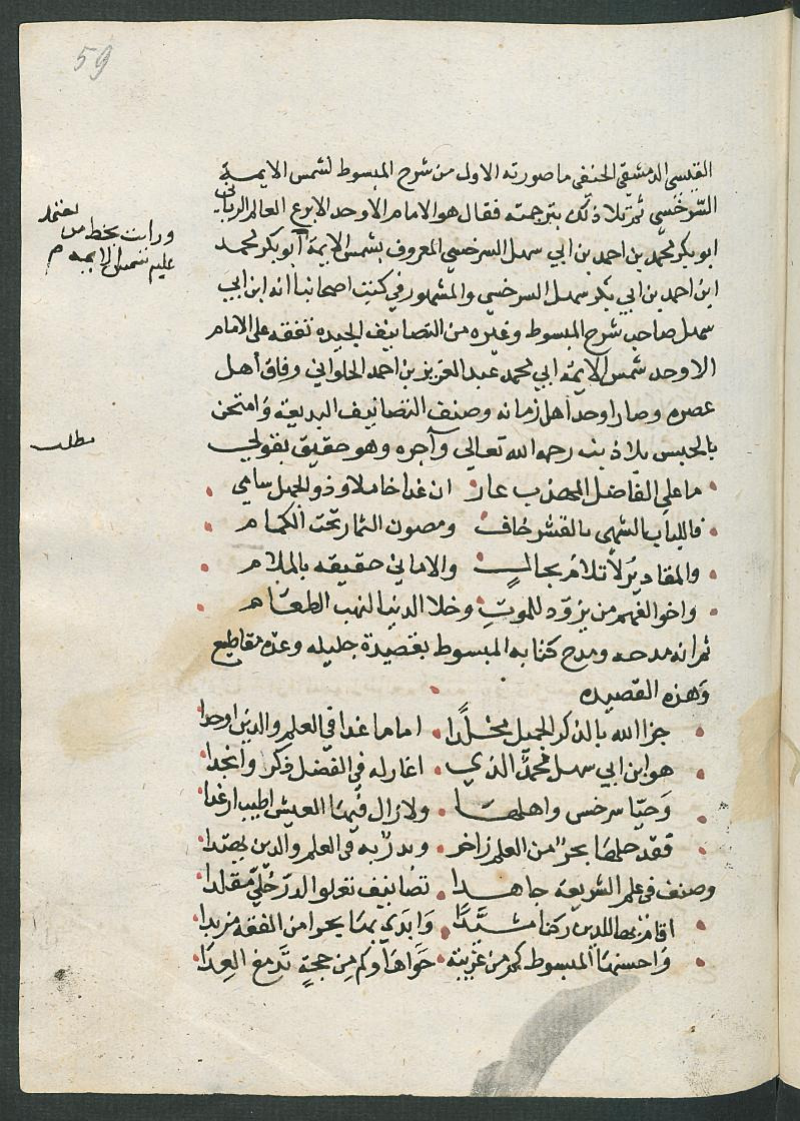 59
القيسي الدمشقي الحنفي ما صورته الاول من شرح المبسوط لشمس الايمة
السّرخسي ثم تلا ذلك بترجمته فقال هو الامام الاوحد الابرع العالم الرباني
ابو بكر محمد بن احمد بن ابي سهل السرخسي المعروف بشمس الايمة ابو بكر محمد
ابن احمد بن ابي بكر سهل السرخسي والمشهور في كتب اصحابنا انه ابن ابي
سهل صاحب شرح المبسوط وغيره من التصانيف الجيده تفقه على الامام
الاوحد شمس الايمة ابي محمد عبد العزيز بن احمد الحلواني وفاق اهل
عصره وصار اوحد اهل زمانه وصنف التصانيف البديعة وامتحن
بالحبس بلا ذنب رحمه الله تعالى وآجره وهو حقيق بقولي
ما على الفاضل المهذب عار ان غدا خاملا وذو الجهل سامي
فاللباب الشهي بالقشر خاف ومصون الثمار تحت الكمام
والمقادير لا تلام بحالٍ والاماني حقيقه بالملام
واخو الفهم من يزوّد للموتِ وخلا الدنيا لنهب الطغام
ثم انه مدحه ومدح كتابه المبسوط بقصيدة جليله وعدة مقاطيع
وهذه القصيده
جزا الله بالذكر الجميل مخلّدا اماما غدا في العلم والدين اوحدا
هو ابن ابي سهل محمدٌ الذي اغار له في الفضل ذكر وانجدا
وَحيّا سرخس واهلها ولا زال فيها العيش اطيب ارغدا
فقد حلها بحرٌ من العلم زاخر وبدرٌ به في العلم والدين يهتدا
وصنف في علم الشريعة جاهدا تصانيف تعلو الدرّ حُليّ مقلدا
اقام بها للدين ركنا مشيَّدًا وَابدي بها بحرا من الفقه مزبدا
وَاحسنها المبسوط كم من غريبة حَواها وكم مِن حجةٍ تَدمغ العِدَا
ورايت بخط من يعتمد
عليه شمس الايمه م
مطلب